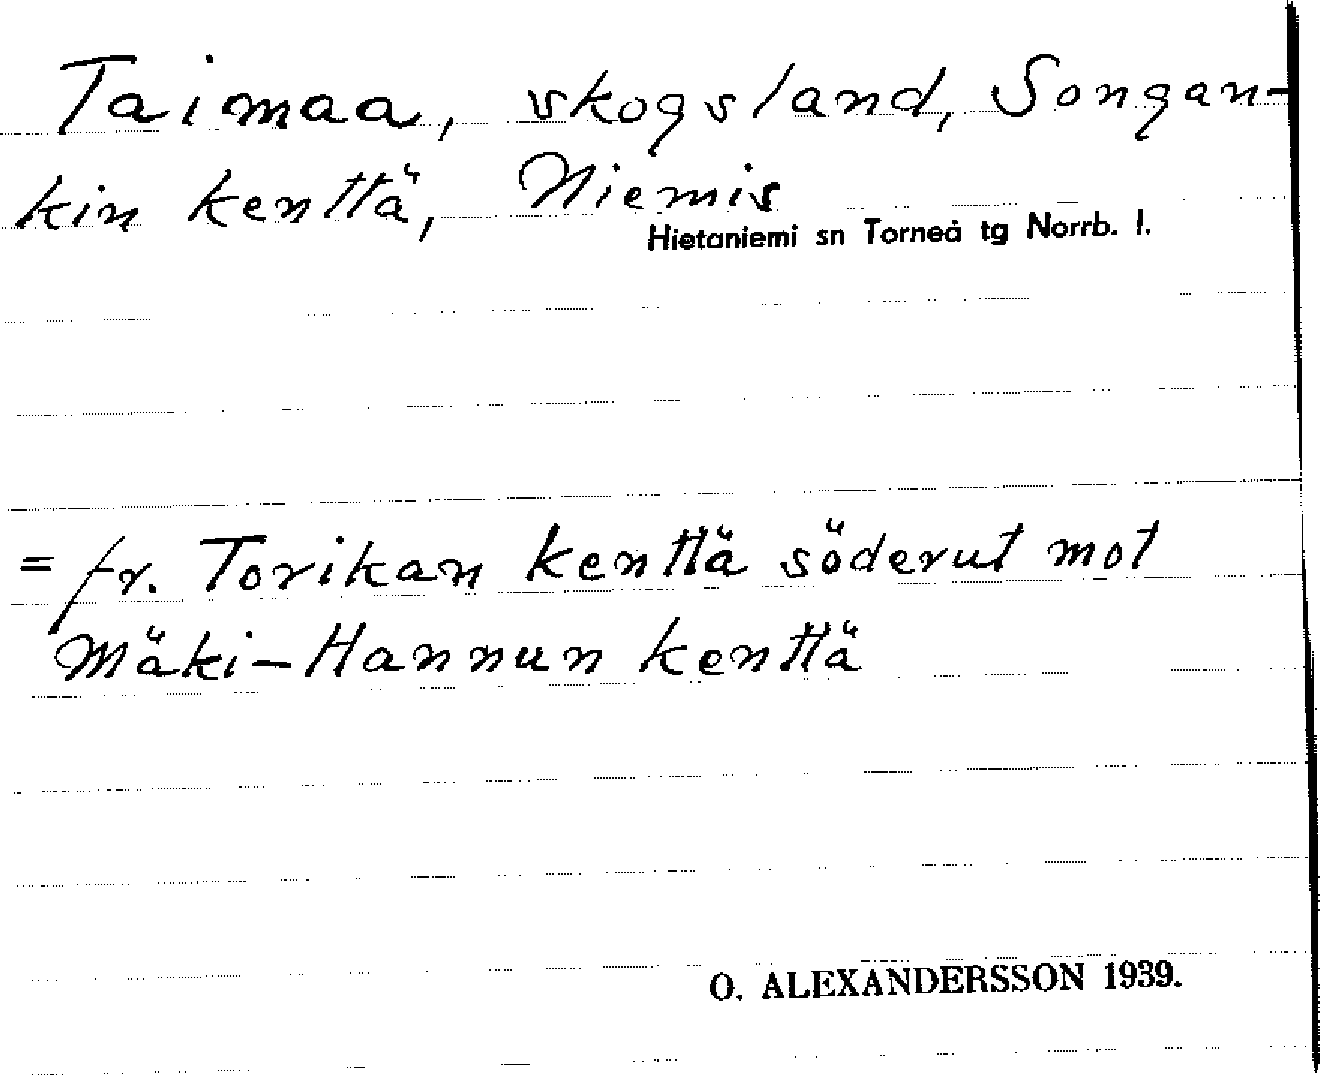 Taimaa, skogsland, Songan-
kin kenttä, Niemis
Hietaniemi sn Torneå tg Norrb. l.
= fr. Torikan kenttä söderut mot
Mäki-Hannun kenttä
O. ALEXANDERSSON 1939.